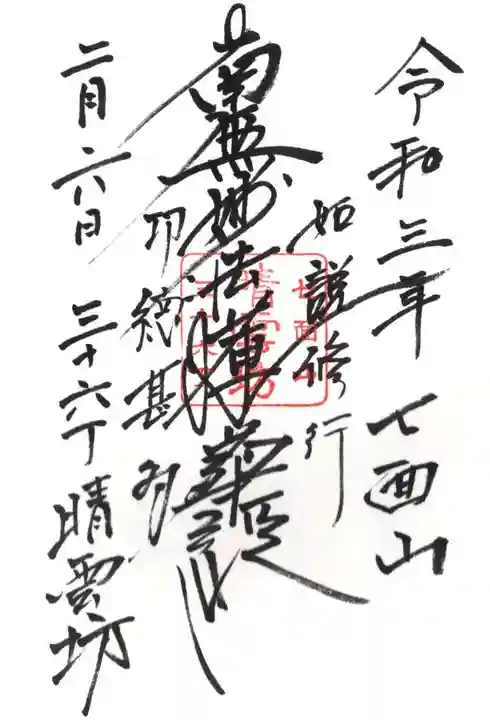 令和三年 七面山
如説修行
南無妙法蓮華経
功徳甚多
二月六日 三十六丁 晴雲坊
七面山
晴雲坊